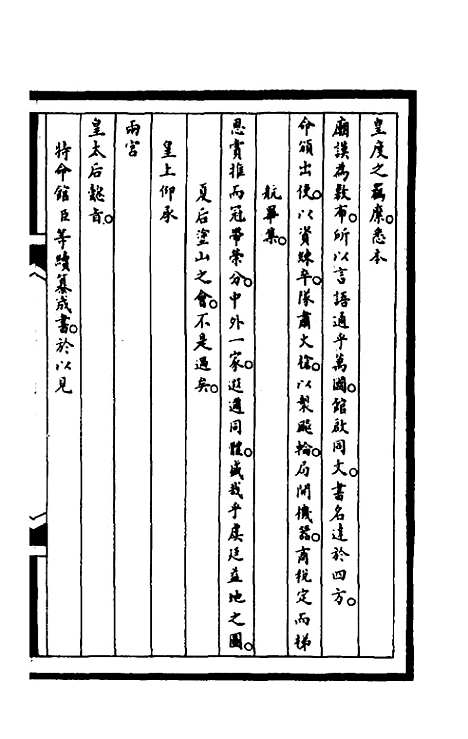 皇度之羈縻。悉本
廟謨為敷布。所以言語通乎萬國。館啟同文。書名達於四方。
命頒出使。以資練卒。隊肅火鎗。以製颿輪。局開機器。商稅定而梯
航畢集。
恩賞推而冠帶榮分。中外一家。遐邇同體。盛哉乎虞廷益地之圖。
夏后塗山之會。不是過矣。
皇上仰承
兩宮
皇太后懿旨。
特命館臣等續纂成書。於以見